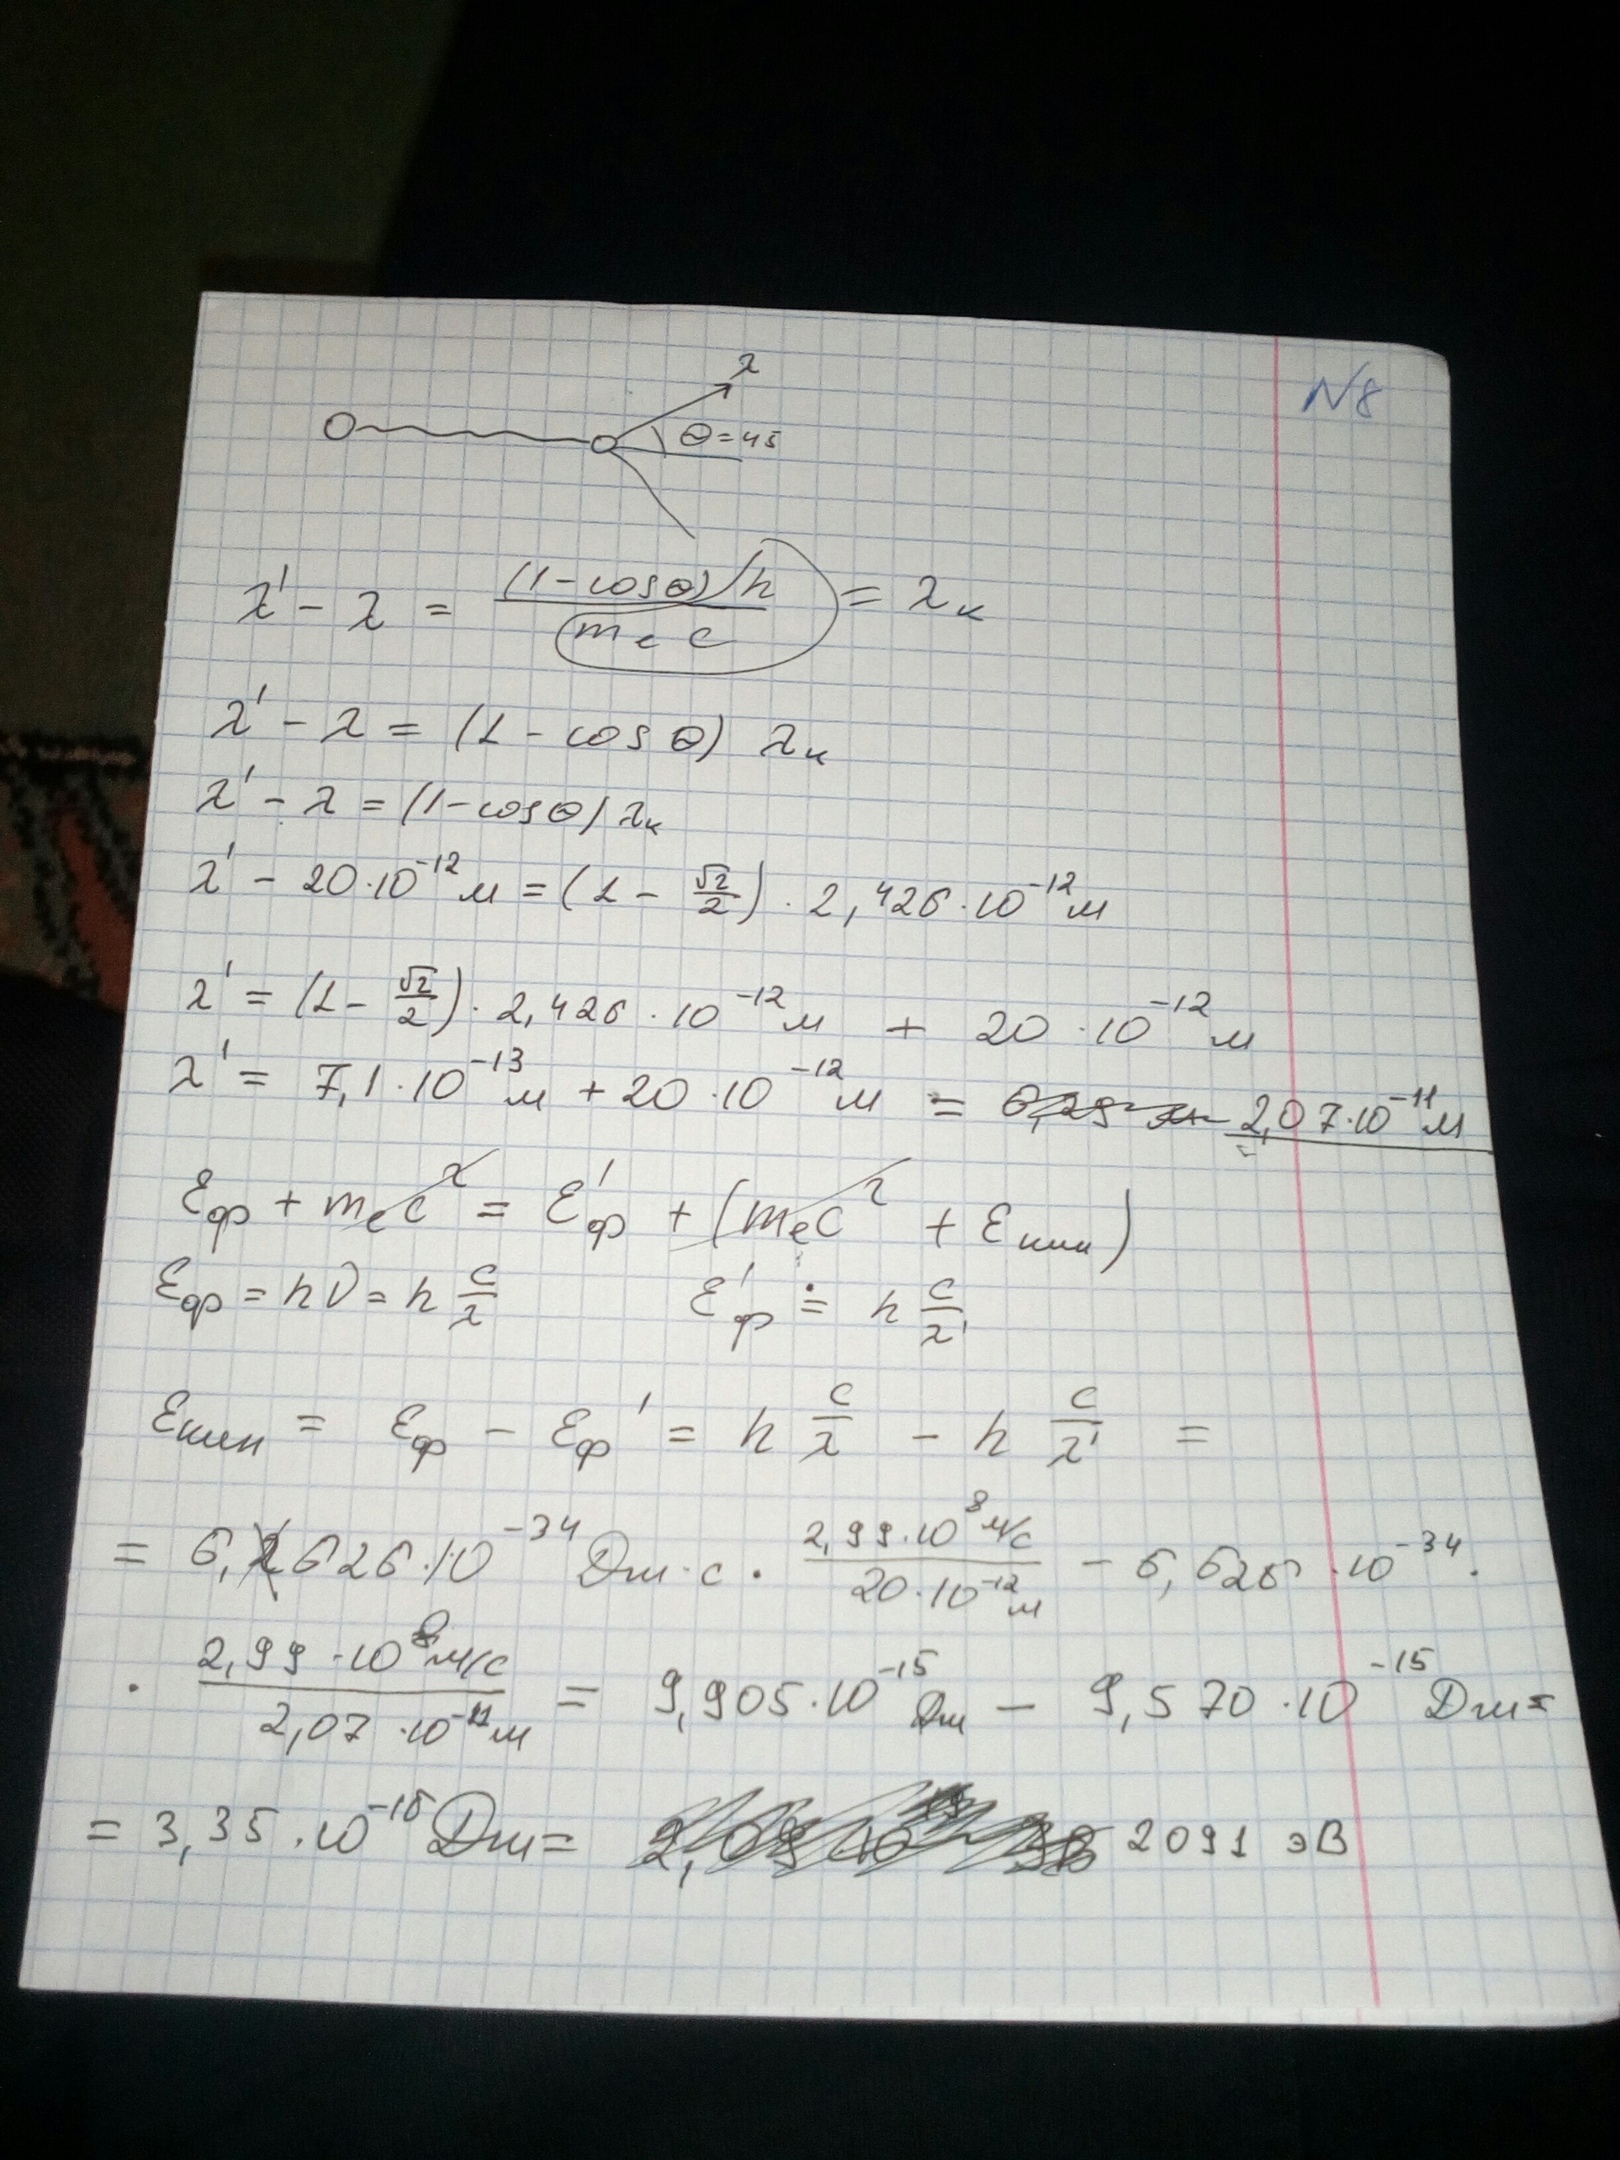 N8
λ
θ=45
λ' - λ = (1-cosθ)h / mₑc = λк
λ' - λ = (1 - cosθ) λк
λ' - λ = (1-cosθ) λк
λ' - 20·10⁻¹² м = (1 - √2/2) · 2,426·10⁻¹² м
λ' = (1 - √2/2) · 2,426·10⁻¹² м + 20·10⁻¹² м
λ' = 7,1·10⁻¹³ м + 20·10⁻¹² м = 2,07·10⁻¹¹ м
Eф + mₑc² = E'ф + (mₑc² + Eкин)
Eф = hν = h c/λ E'ф = h c/λ'
Eкин = Eф - Eф' = h c/λ - h c/λ' =
= 6,626·10⁻³⁴ Дж·с · 2,99·10⁸ м/с / 20·10⁻¹² м - 6,626·10⁻³⁴ ·
· 2,99·10⁸ м/с / 2,07·10⁻¹¹ м = 9,905·10⁻¹⁵ Дж - 9,570·10⁻¹⁵ Дж =
= 3,35·10⁻¹⁶ Дж = 2091 эВ